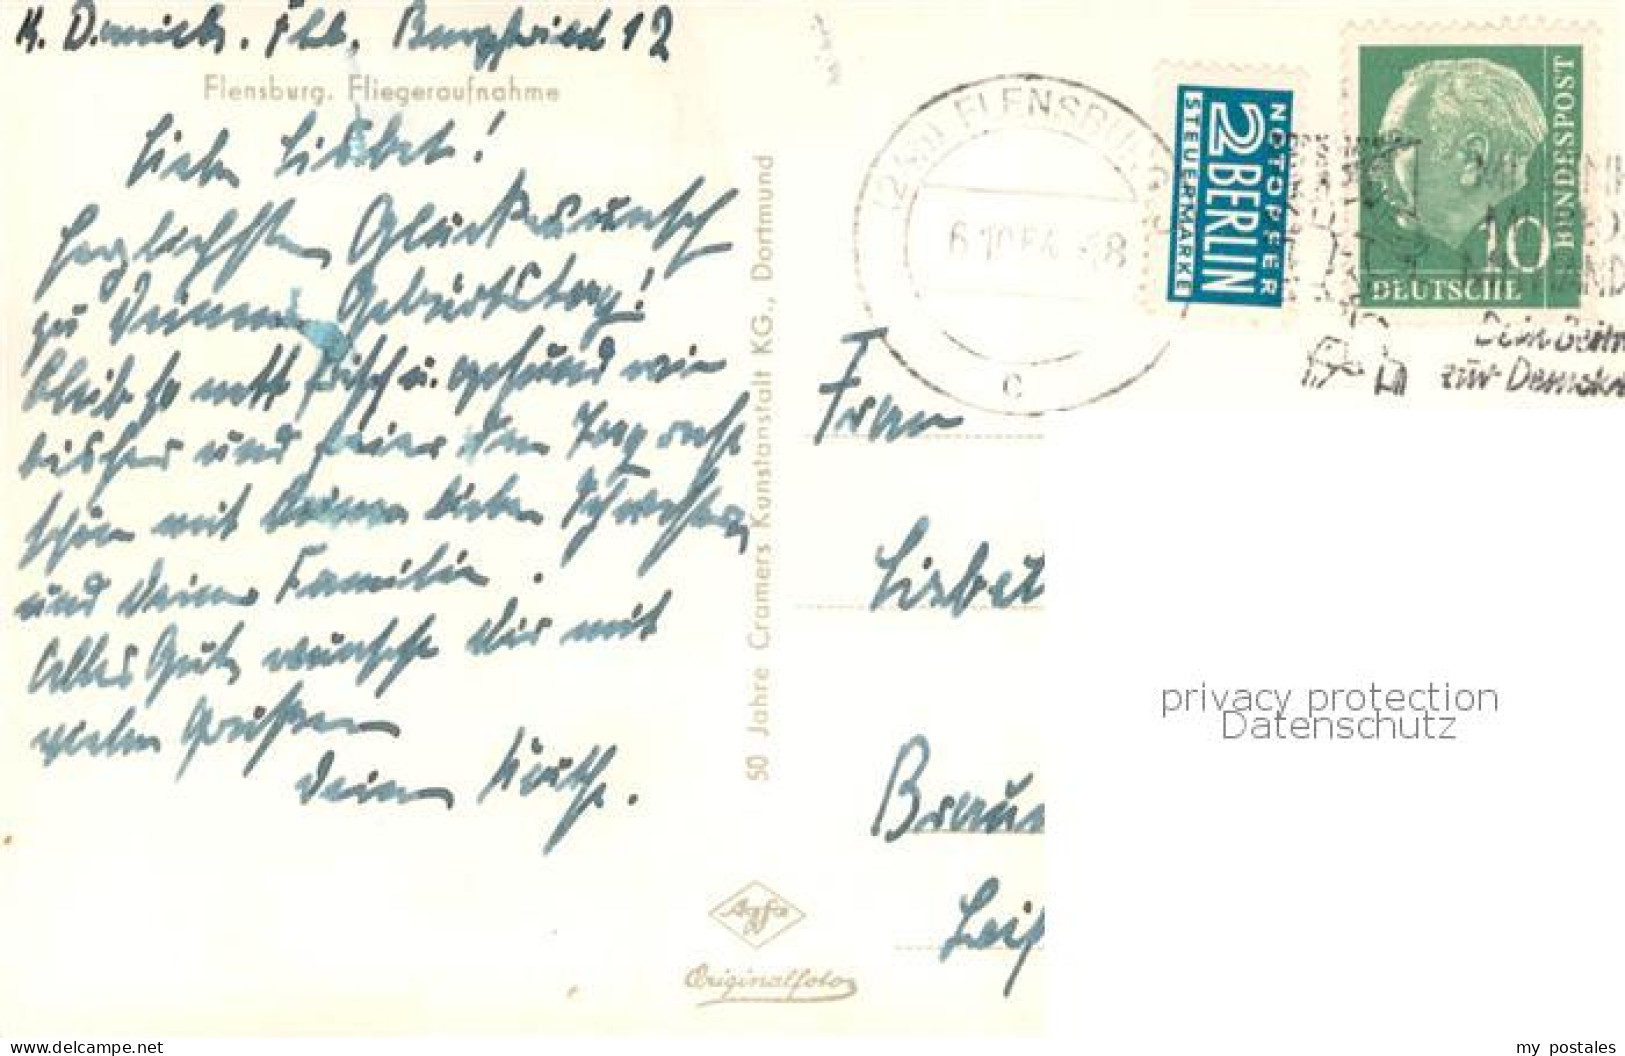 Flb. Burgfried 12
Flensburg. Fliegeraufnahme
Liebe Lisbet!
Herzlichsten Glückwunsch
zu Deinem Geburtstag!
Bleib so nett frisch u. gesund wie
bisher und feier den Tag recht
schön mit Deinen lieben Schwestern
und Deiner Familie.
Alles Gute wünscht Dir mit
vielen Grüßen
Deine Käthe.
50 Jahre Cramers Kunstanstalt KG., Dortmund
Agfa
Originalfoto
FLENSBURG
c
NOTOPFER
2 BERLIN
STEUERMARKE
BUNDESPOST
10
DEUTSCHE
Dein Beitr
zur Demokr
Frau
Lisbet
Braun
Leip
privacy protection
Datenschutz
www.delcampe.net
my_postales